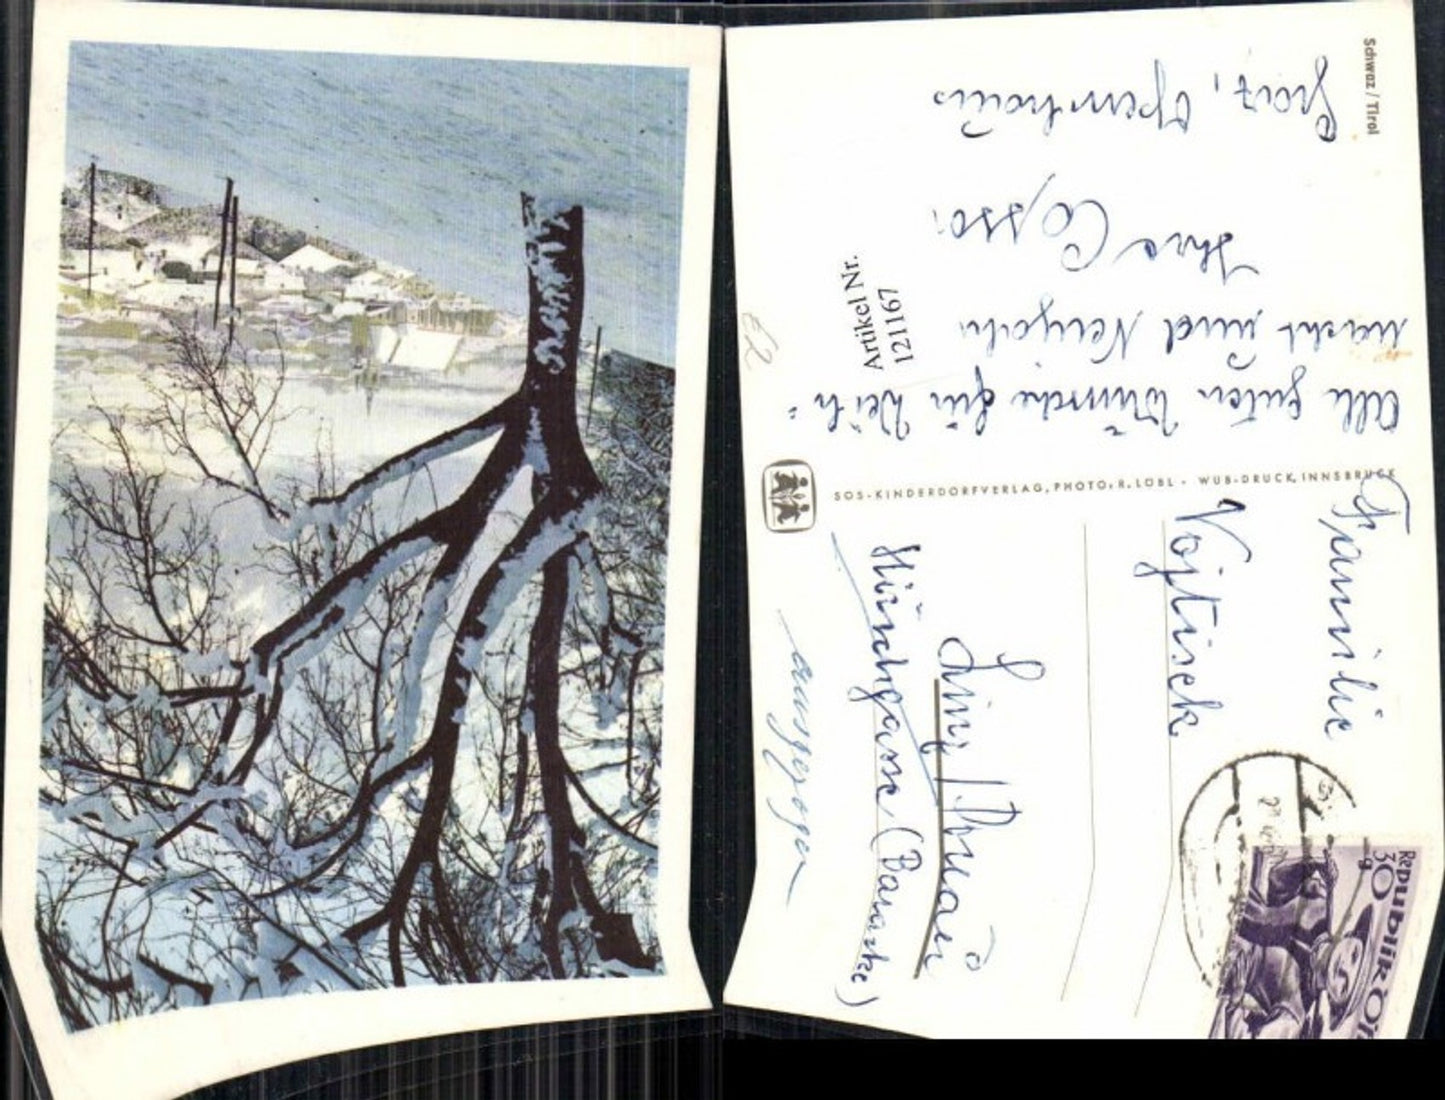 Schwaz / Tirol
Graz, Opernhaus
Alle guten Wünsche für Weih=
nacht und Neujahr
Ihre
Artikel Nr.
121167
SOS-KINDERDORFVERLAG, PHOTO: R. LÖBL - WUB-DRUCK, INNSBRUCK
Familie
Vojtisek
Linz /
(Baracke)
ausgezogen
REPUBLIK Ö
30 g